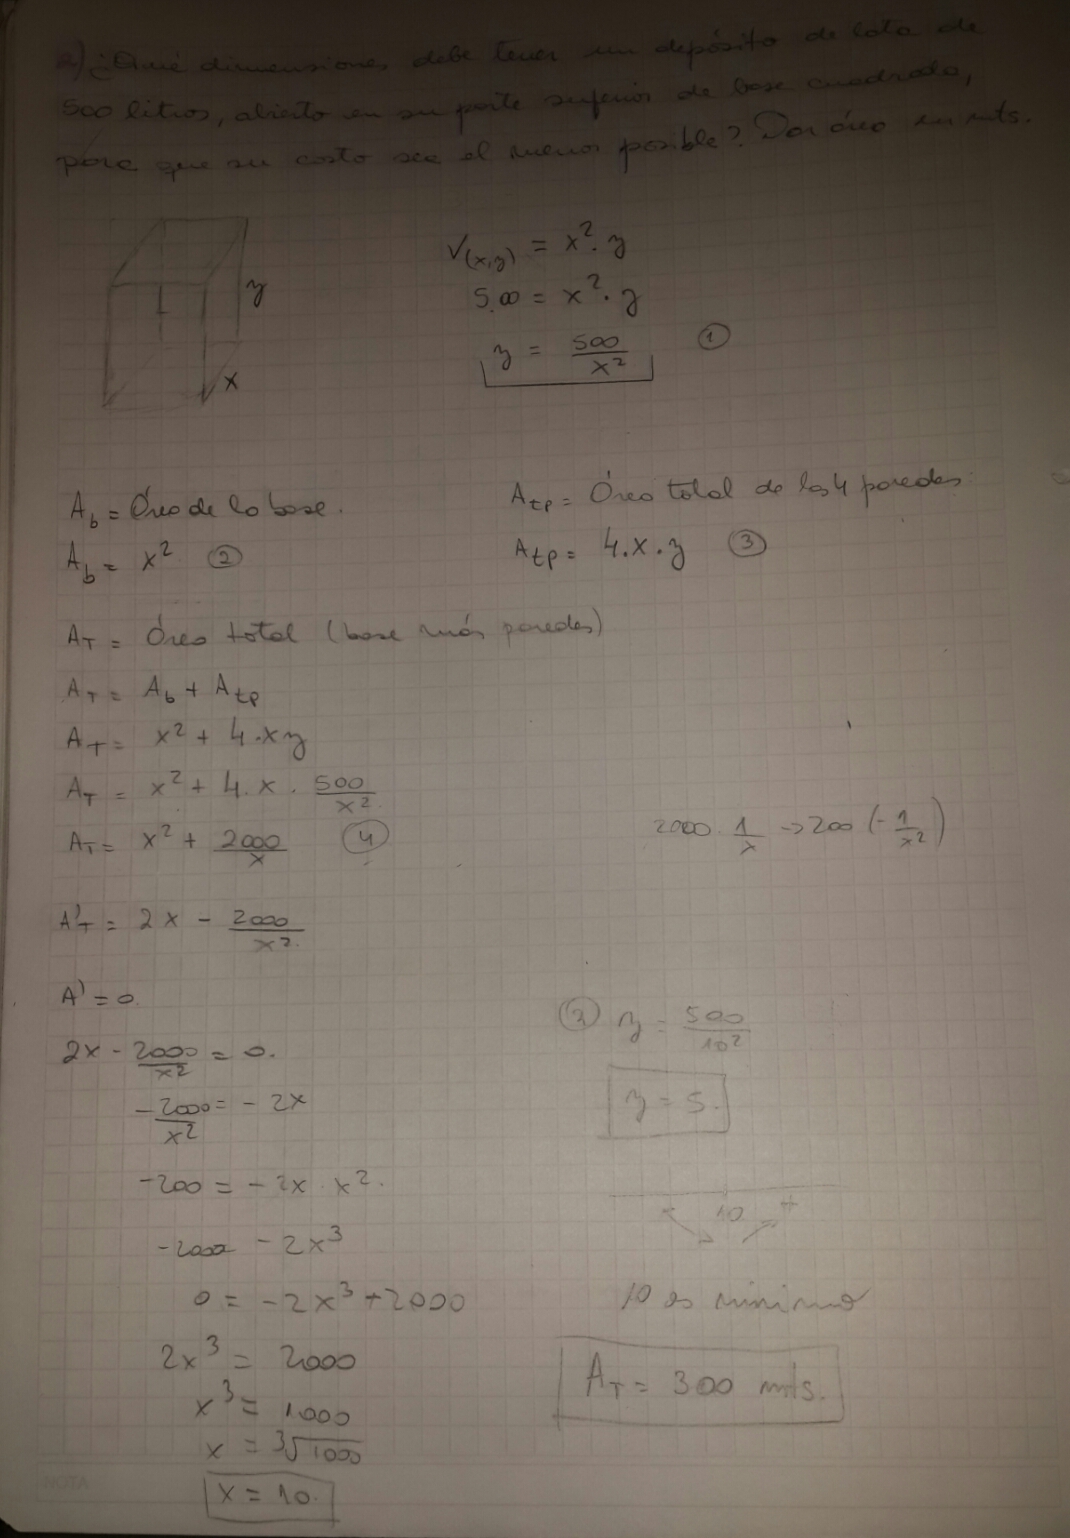 2) ¿Qué dimensiones debe tener un depósito de lata de
500 litros, abierto en su parte superior de base cuadrada,
para que su costo sea el menor posible? Dar área en mts.
y
x
V(x,y) = x². y
500 = x². y
y = 500/x² ①
Ab = Área de la base.
Ab = x² ②
Atp = Área total de las 4 paredes.
Atp = 4.x.y ③
AT = Área total (base más paredes)
AT = Ab + Atp
AT = x² + 4.xy
AT = x² + 4.x. 500/x²
AT = x² + 2000/x ④
2000. 1/x -> 200 (-1/x²)
A'T = 2x - 2000/x²
A' = 0.
2x - 2000/x² = 0.
-2000/x² = -2x
-200 = -2x. x².
-2000 -2x³
0 = -2x³ + 2000
2x³ = 2000
x³ = 1000
x = ³√1000
x = 10.
② y = 500/10²
y = 5.
10 +
10 es mínimo
AT = 300 mts.
NOTA